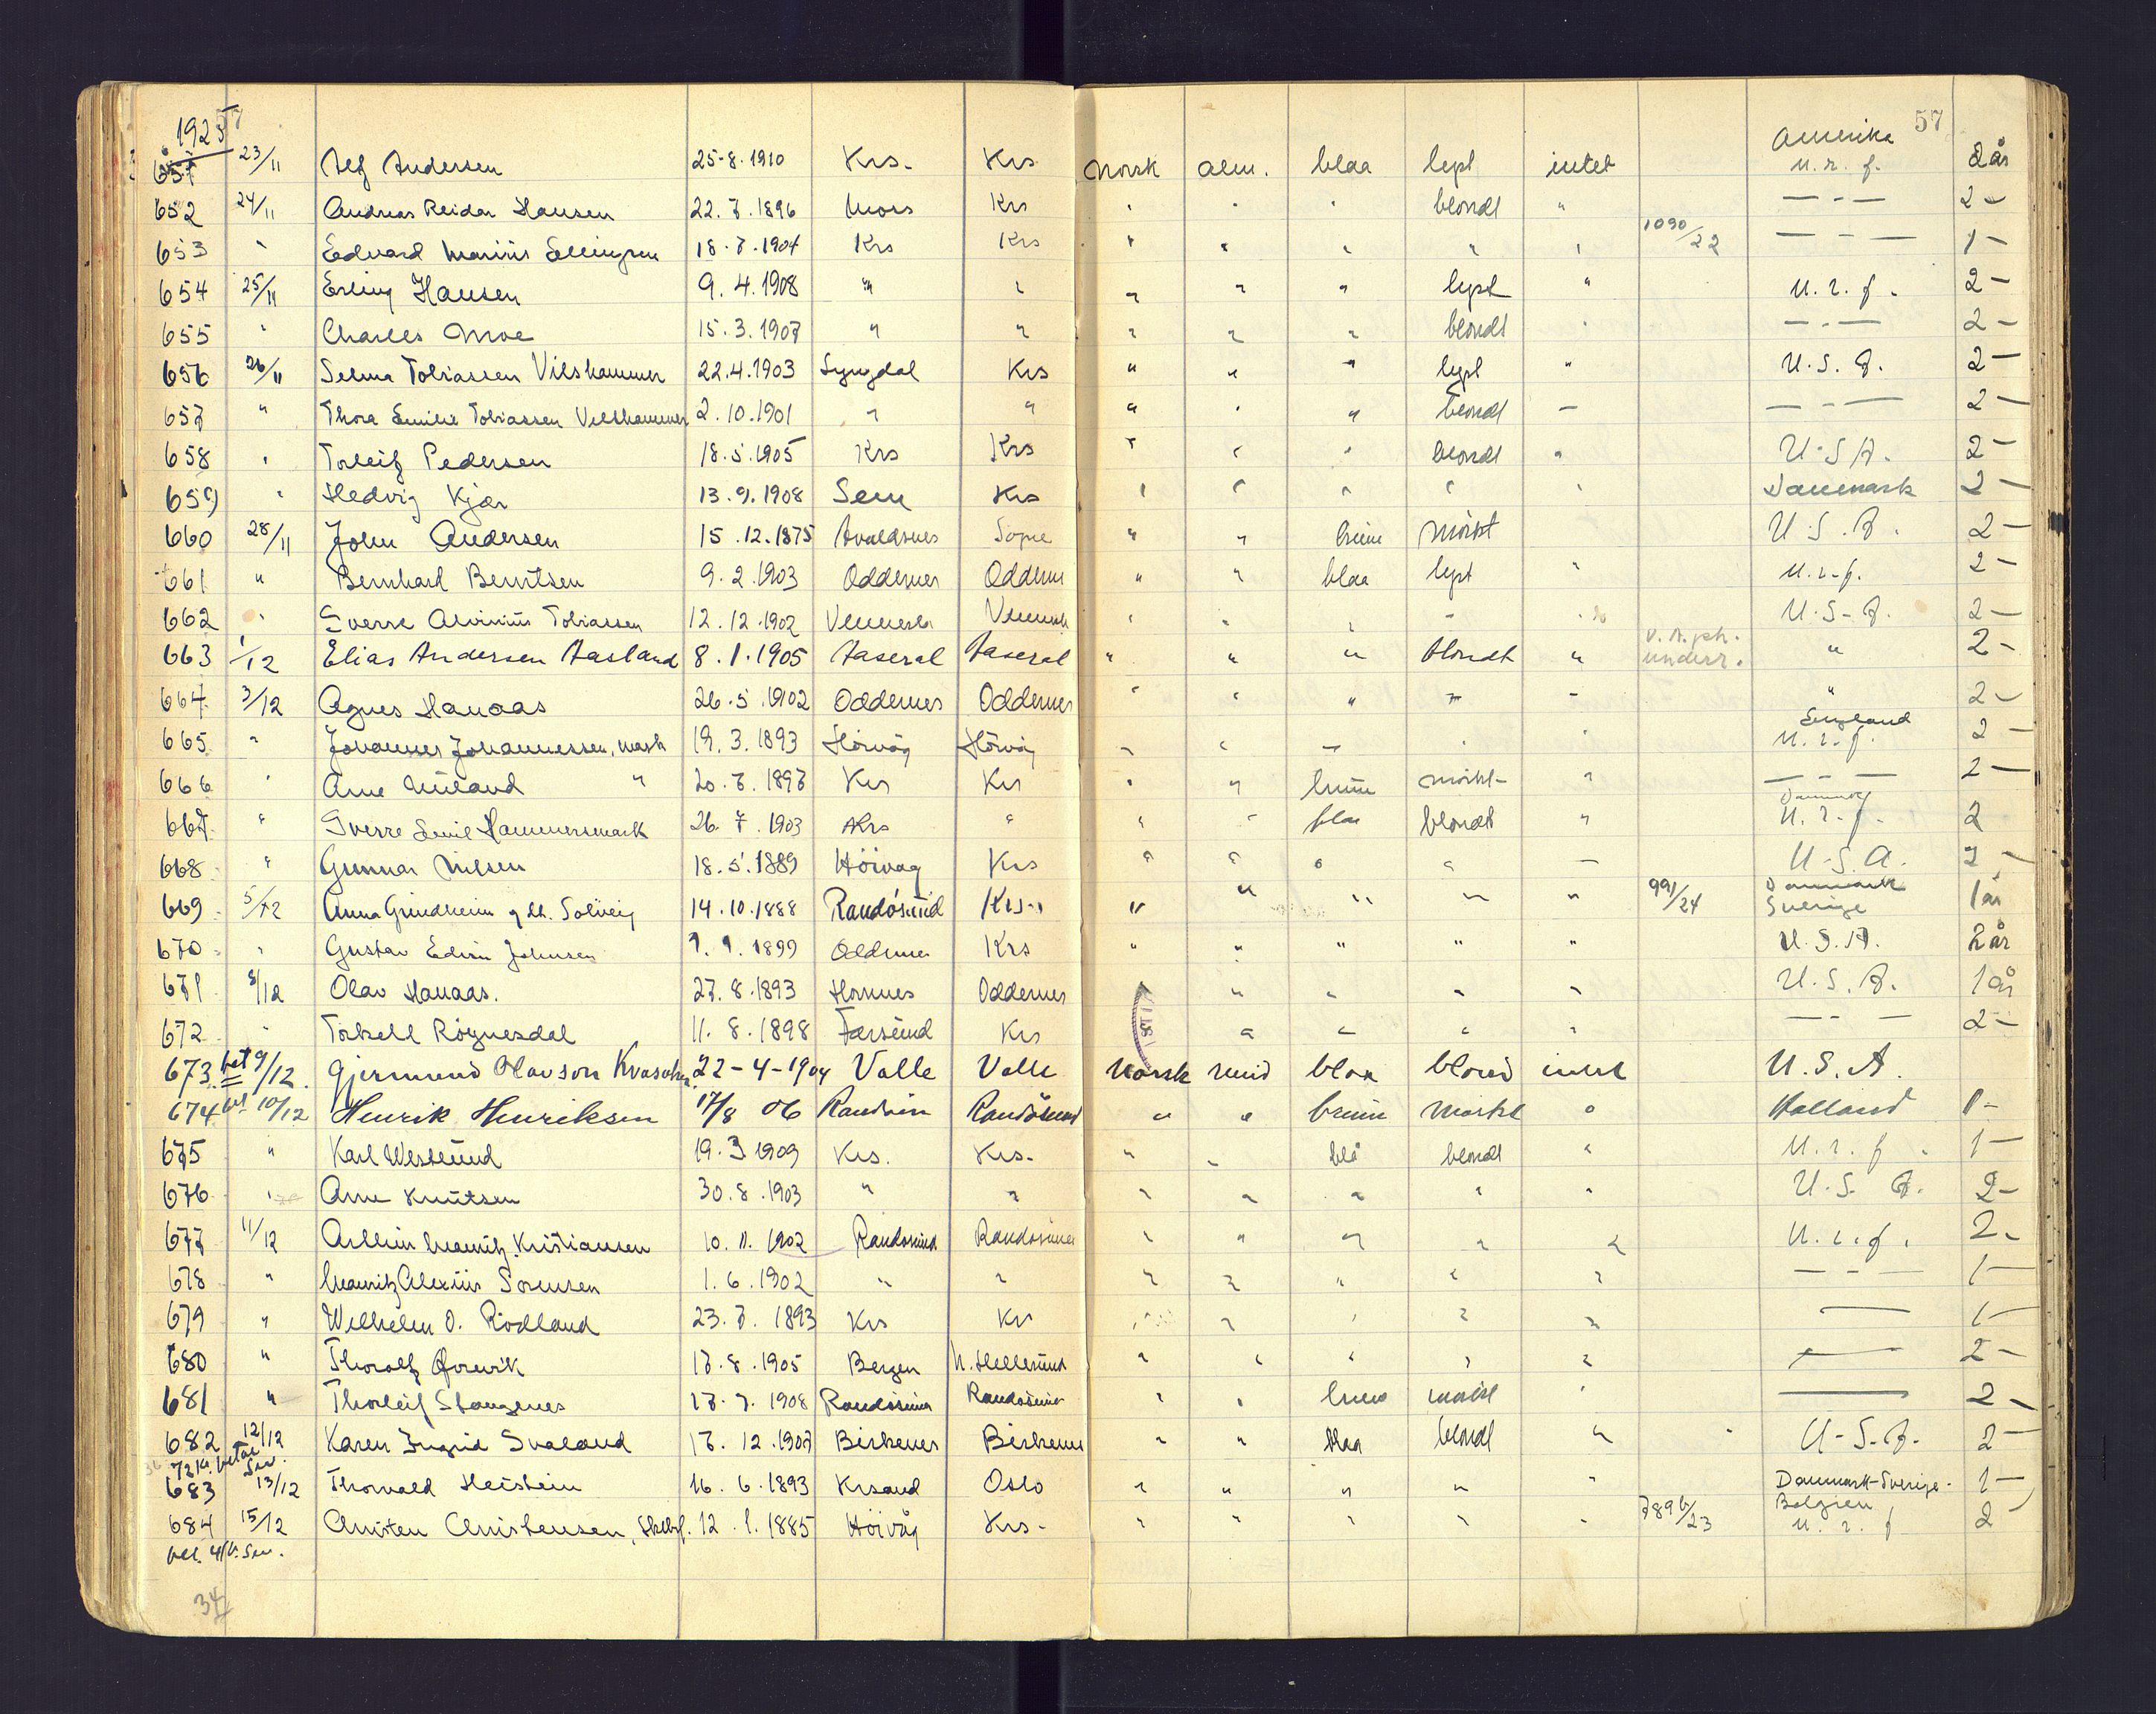 1925 57
651 23/11 Alf Andersen 25-8.1910 Krs. Krs norsk alm. blaa lyst intet Amerika u.r.f. 2 år
652 24/11 Andreas Reidar Hansen 22.7.1896 Moss Krs " " " blondt " — " — 2 —
653 " Edvard Marius Ellingsen 18.7.1904 Krs Krs " " " " " 1090/22 — " — 1 —
654 25/11 Erling Hansen 9.4.1908 " " " " " lyst " u.r.f. 2 —
655 " Charles Moe 15.3.1907 " " " " " blondt " — " — 2 —
656 26/11 Selma Tobiassen Vilshammer 22.4.1903 Lyngdal Krs " " " lyst " U.S.A. 2 —
657 " Thora Emilie Tobiassen Vilshammer 2.10.1901 " " " " " blondt — — " — 2 —
658 " Torleif Pedersen 18.5.1905 Krs Krs " " " blondt " U.S.A. 2 —
659 " Hedvig Kjær 13.9.1908 Sem Krs " " " " " Danmark 2 —
660 28/11 John Andersen 15.12.1875 Avaldsnes Søgne " " brune mörkt U.S.A. 2 —
661 " Bernhard Berntsen 9.2.1903 Oddernes Oddernes " " blaa lyst " u.r.f. 2 —
662 " Sverre Tobiassen 12.12.1902 Vennesla Vennesla " " " " " U.S.A. 2 —
663 1/12 Elias Andersen Aasland 8.1.1905 Aaseral Aaseral " " " blondt " underr. " 2 —
664 3/12 Agnes Hanaas 26.5.1902 Oddernes Oddernes " " " " " " 2 —
665 " Johannes Johannessen, mask 19.3.1893 Höivåg Höivåg " " " " " England u.r.f. 2 —
666 " Arne " 20.7.1897 Krs Krs " " brune mörkt " — " — 2 —
667 " Sverre Emil Hammersmark 26.7.1903 Krs " " " blaa blondt " Danmark u.r.f. 2
668 " Gunnar Nilsen 18.5.1889 Höivag Krs " " " " — U.S.A. 2 —
669 5/12 Anna Grundheim g dt. Solveig 14.10.1888 Randösund Krs. " " " " " 991/24 Danmark Sverige 1 år
670 " Gustav Edvin Johnsen 1.9.1899 Oddernes Krs " " " " " U.S.A. 2 år
671 8/12 Olav Hanaas. 27.8.1893 Hornnes Oddernes " " " " U.S.A. 1 år
672 " Torkell Rögnesdal 11.8.1898 Farsund Krs " " " " — " — 2 —
673 bet 9/12 Gjermund Olavson 22-4-1904 Valle Valle norsk mid blaa blond intet U.S.A.
674 bet 10/12 Henrik Henriksen 17/8 06 Randösund " " brune mörkt " Holland 1 —
675 " Karl Westlund 19.3 1909 Krs. Krs. " " blå blondt " u.r.f. 1 —
676 " Arne Knutsen 30.8.1903 " " " " " " " U.S.A. 2 —
677 11/12 Mauritz Kristiansen 10.11.1902 Randösund Randösund " " " " " u.r.f. 2 —
678 " Mauritz Alexius Sørensen 1.6.1902 " " " " " " " — " — 1 —
679 " Wilhelm O. Rödland 23.7.1893 Krs Krs " " " " " — 1 —
680 " Thorolf 17.8.1905 Bergen N. Hellesund " " " " " — 2 —
681 " Thorleif Stangenes 17.7.1908 Randösund Randösund " " brune mörkt " — 2 —
682 12/12 Karen Ingrid Svaland 17.12.1907 Birkenes Birkenes " " blaa blondt " U.S.A. 2 —
683 13/12 Thorvald Heistein 16.6.1893 Krsand Oslo " " " " " Danmark-Sverige- 1 —
684 15/12 Christen Christensen, 12.1.1885 Höivåg Krs. " " " " " 23 Belgien u.r.f 2
34